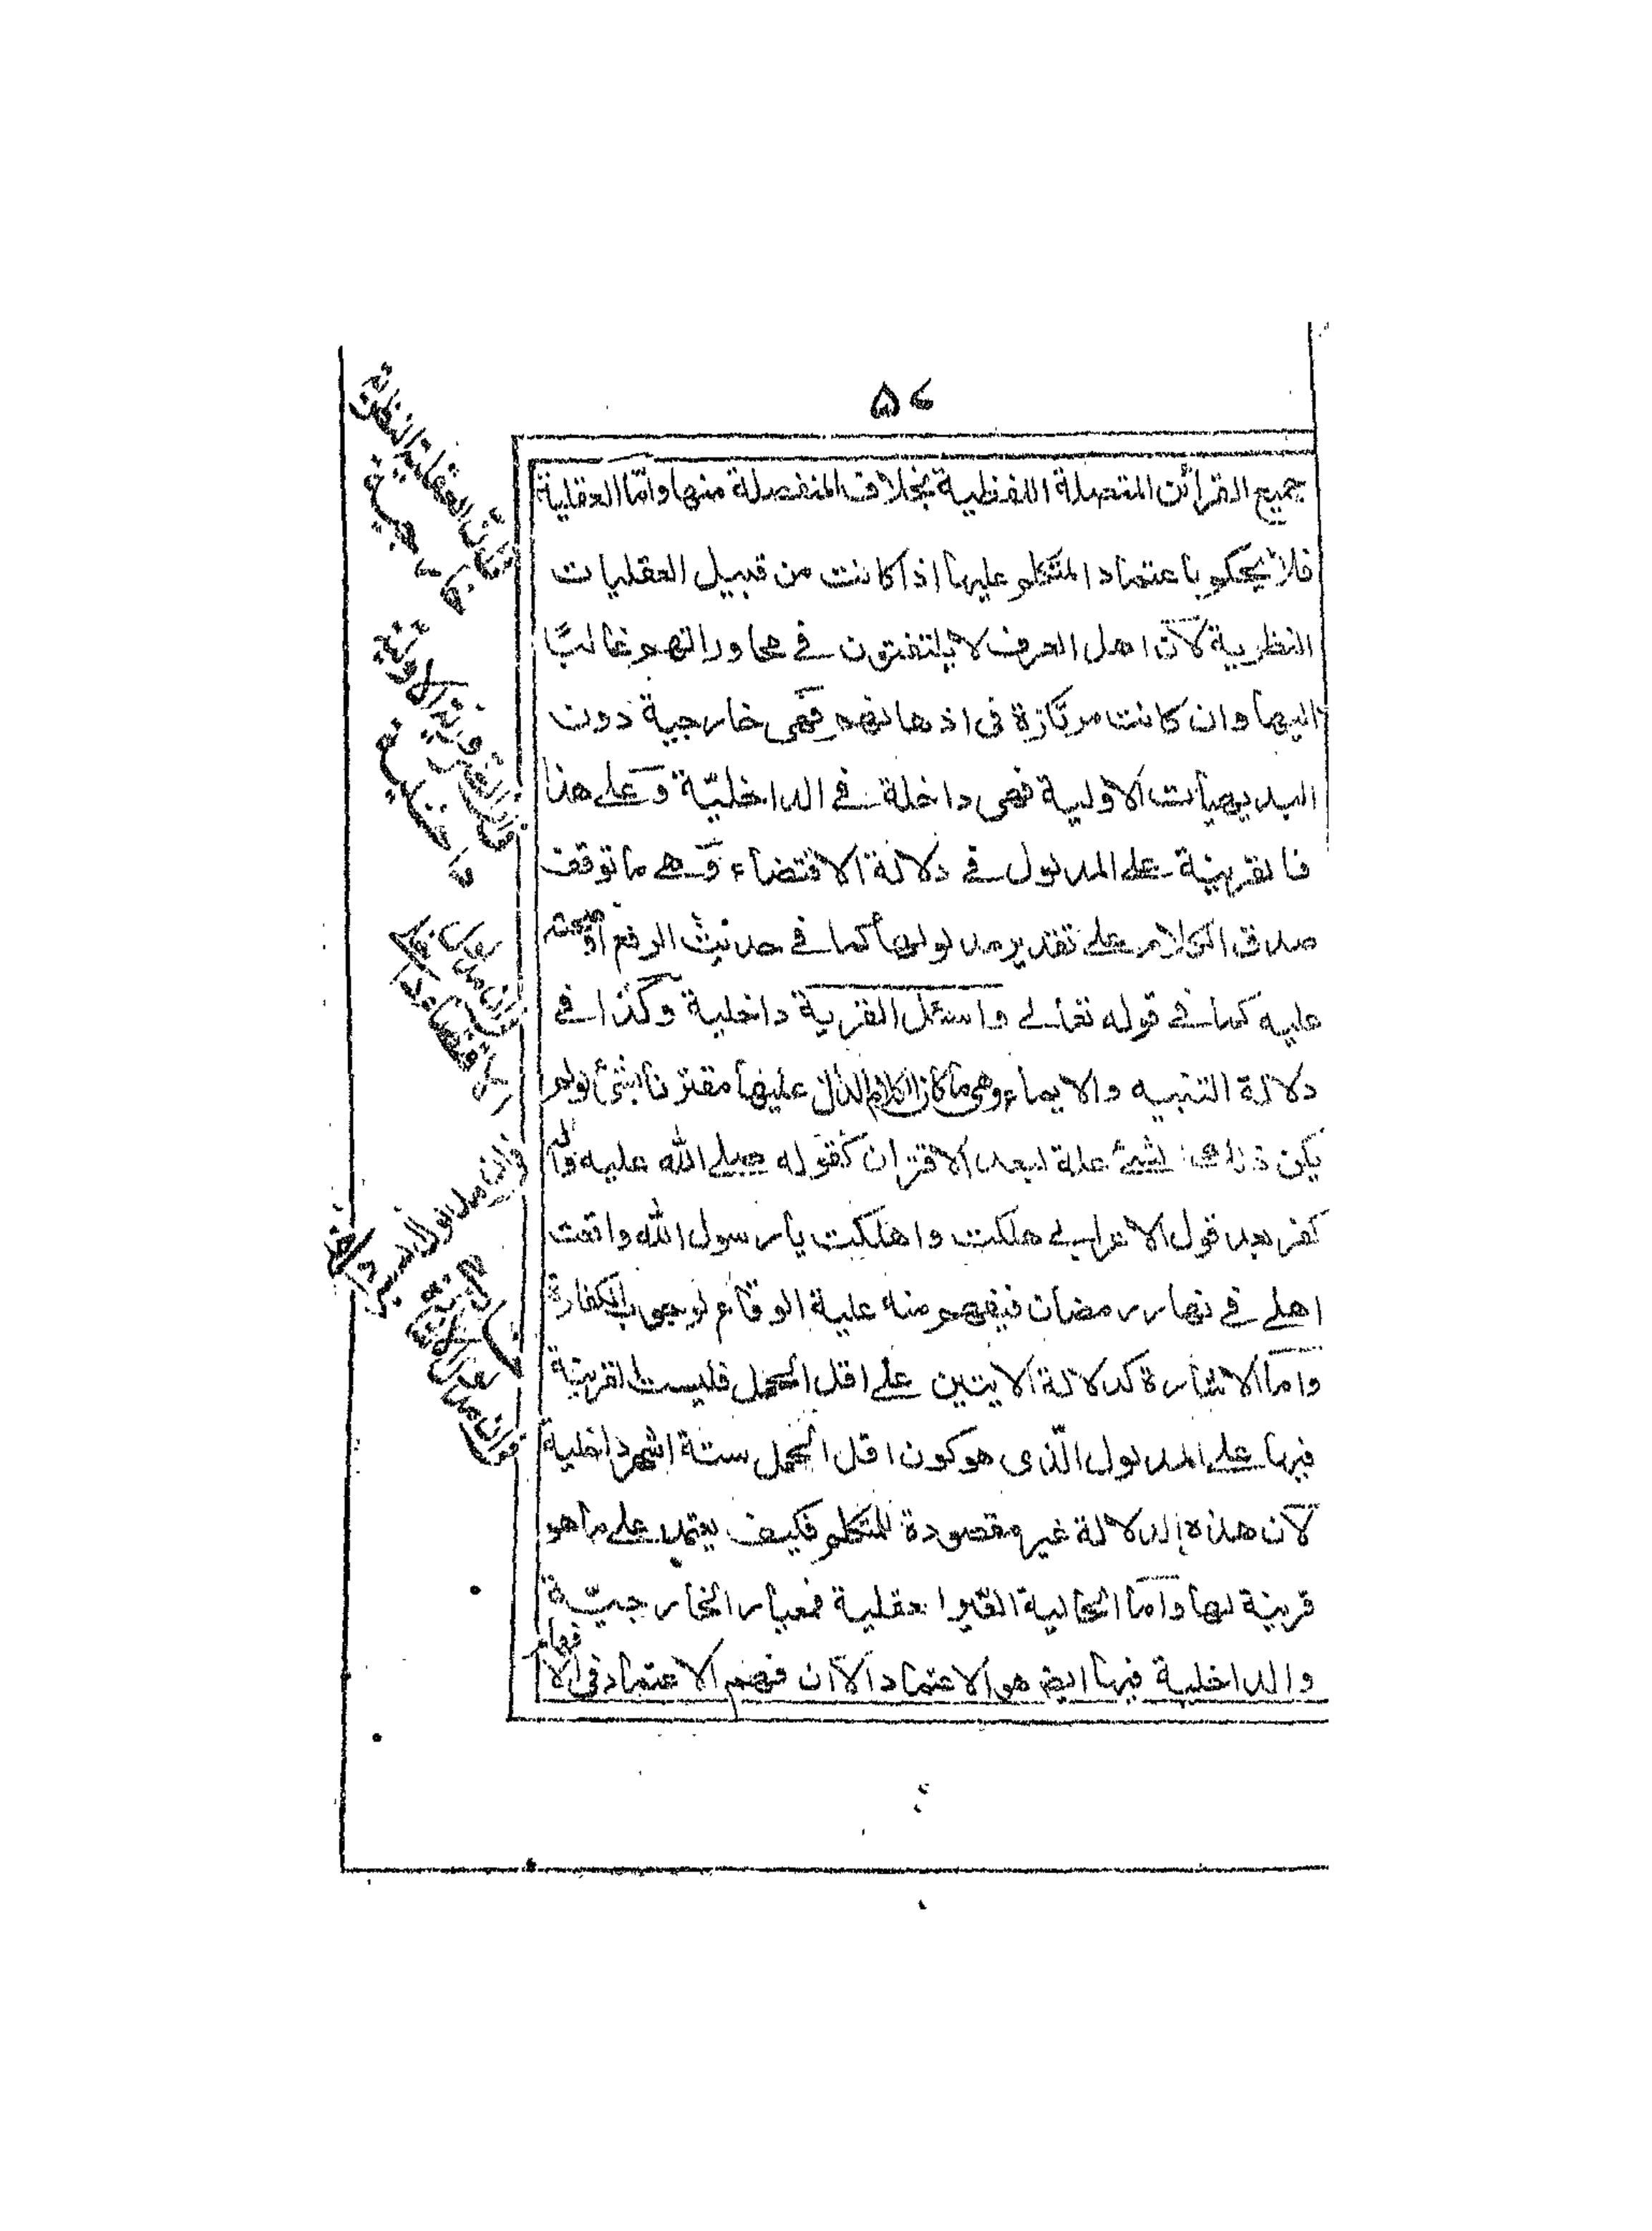 ۵۷
جميع القرائن المتصلة اللفظية بخلاف المنفصلة منها وامّا العقلية
فلا يحكم باعتماد المتكلم عليها اذا كانت من قبيل العقليات
النظرية لانّ اهل العرف لا يلتفتون في محاوراتهم غالبًا
اليها وان كانت مركّازة في اذهانهم فهَى خارجية دون
البديهيات الاولية فهى داخلة في الداخليّة وعلى هذا
فالقرينة على المدلول في دلالة الاقتضاء وهي ما توقف
صدق الكلام على تقدير مدلولها كما في حديث الرفع او صحته
عليه كما في قوله تعالى واسئل القرية داخلية وكذا في
دلالة التنبيه والايماء وهى ما كان الكلام الدال عليها مقترنا بشئ لو لم
يكن ذلك الشئ علة لبعد الاقتران كقوله صلى الله عليه واله
كفر بعد قول الاعرابي هلكت واهلكت يا رسول الله واقعت
اهلي في نهار رمضان فيفهم منه علية الوقاع لوجوب الكفارة
وامّا الاشارة كدلالة الايتين على اقل الحمل فليست القرينة
فيها على المدلول الّذى هو كون اقل الحمل ستة اشهر داخلية
لانّ هذه الدلالة غير مقصودة للمتكلم فكيف يعتمد على ما هو
قرينة لها وامّا الحالية الغير العقلية فمعيار الخارجيّة
والداخلية فيها ايض هو الاعتماد الا ان فهم الاعتماد في
القرائن العقلية النظرية
خارجية
القرينة الاولية
داخلية
ان مدلول
الاقتضاء
وان مدلول التنبيه داخل
وان مدلول الاشارة
خارجية